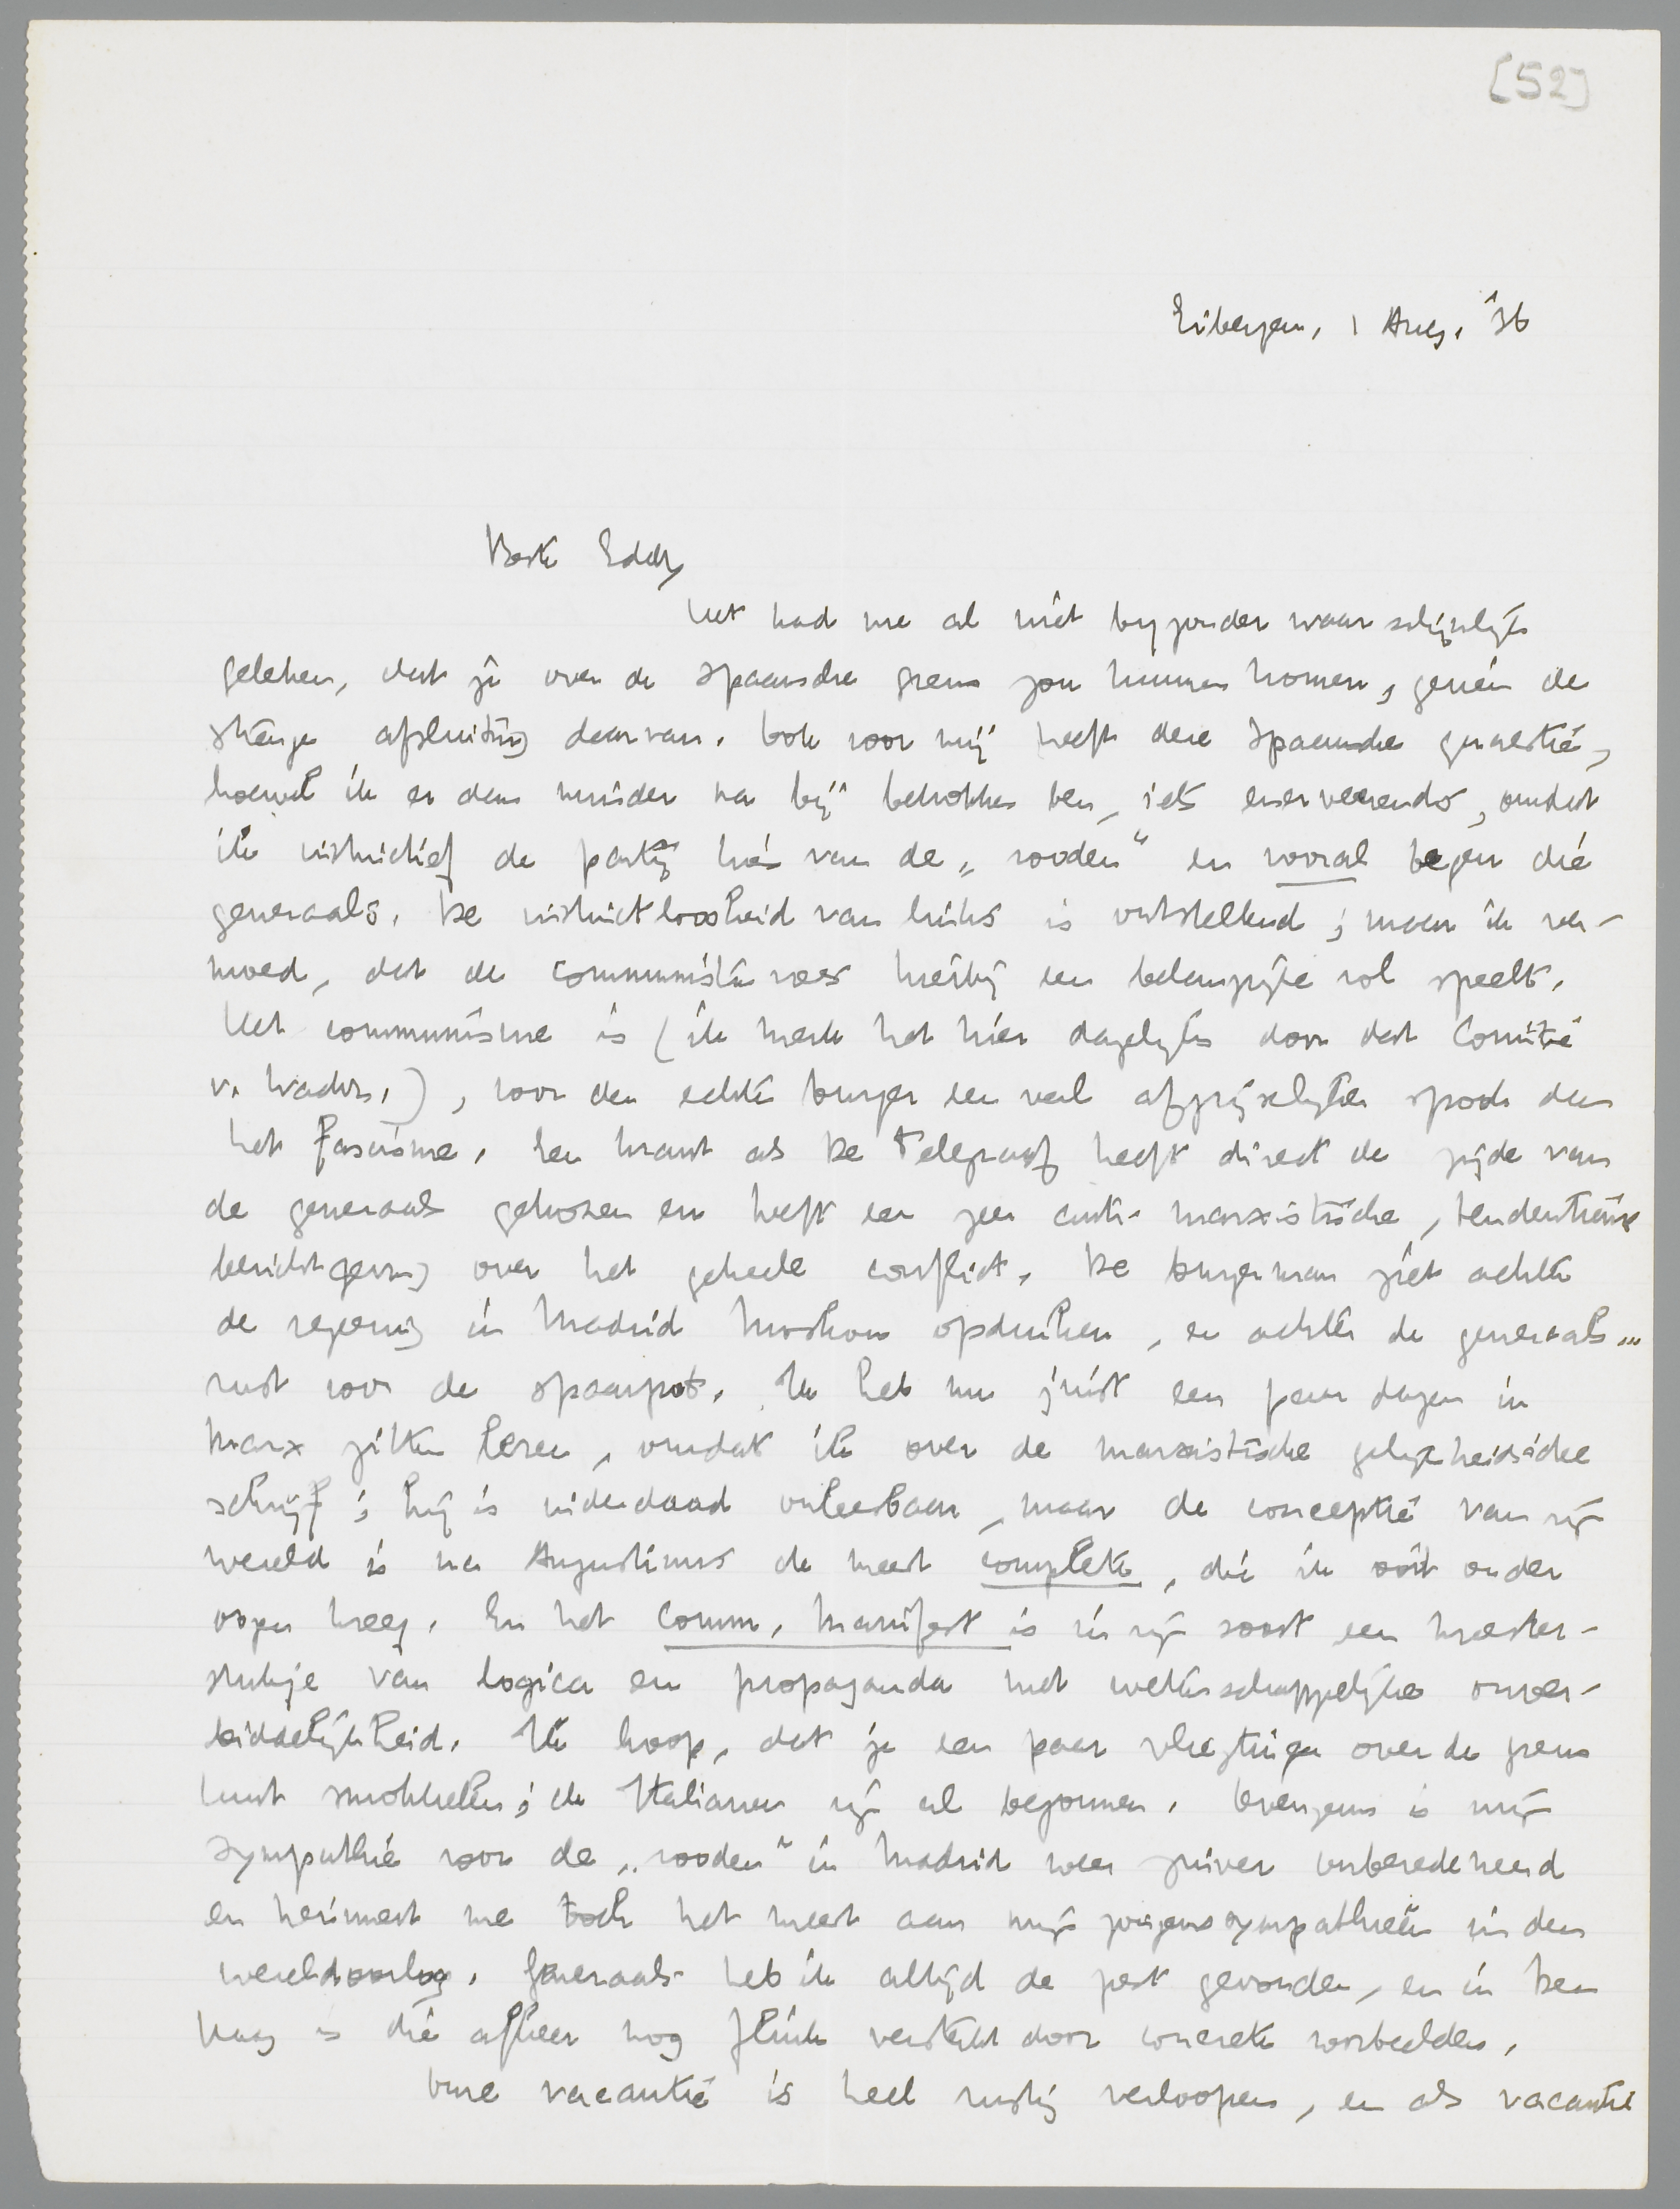 [52]
Eibergen, 1 Aug. '36
Beste Eddy
Het had me al niet bijzonder waarschijnlijk
geleken, dat je over de Spaansche grens zou kunnen komen, gezien de
strenge afsluiting daarvan. Ook voor mij heeft deze Spaansche quaestie,
hoewel ik er dan minder na bij betrokken ben, iets enerveerends, omdat
ik instinctief de partij kies van de „rooden" en vooral tegen die
generaals. De instinctloosheid van links is ontstellend; maar ik ver-
moed, dat de communistenvrees hierbij een belangrijke rol speelt.
Het communisme is (ik merk het hier dagelijks door dat Comité
v. Waakz.), voor den echten burger een veel afgrijselijker spook dan
het fascisme. Een krant als De Telegraaf heeft direct de zijde van
de generaals gekozen en heeft een zeer anti-marxistische, tendentieuze
berichtgeving over het geheele conflict. De burgerman ziet achter
de regeering in Madrid Moskou opduiken, en achter de generaals...
rust voor de spaarpot. Ik heb nu juist een paar dagen in
Marx zitten lezen, omdat ik over de marxistische gelijkheidsidee
schrijf; hij is inderdaad onleesbaar, maar de conceptie van zijn
wereld is na Augustinus de meest complete, die ik ooit onder
oogen kreeg. En het Comm. Manifest is in zijn soort een meester-
stukje van logica en propaganda met wetenschappelijke onver-
biddelijkheid. Ik hoop, dat je een paar vliegtuigen over de grens
kunt smokkelen; de Italianen zijn al begonnen. Overigens is mijn
sympathie voor de „rooden" in Madrid weer zuiver onberedeneerd
en herinnert me toch het meest aan mijn jongenssympathieën in den
wereldoorlog. Generaals heb ik altijd de pest gevonden, en in Den
Haag is die afkeer nog flink versterkt door concrete voorbeelden.
Onze vacantie is heel rustig verloopen, en als vacantie